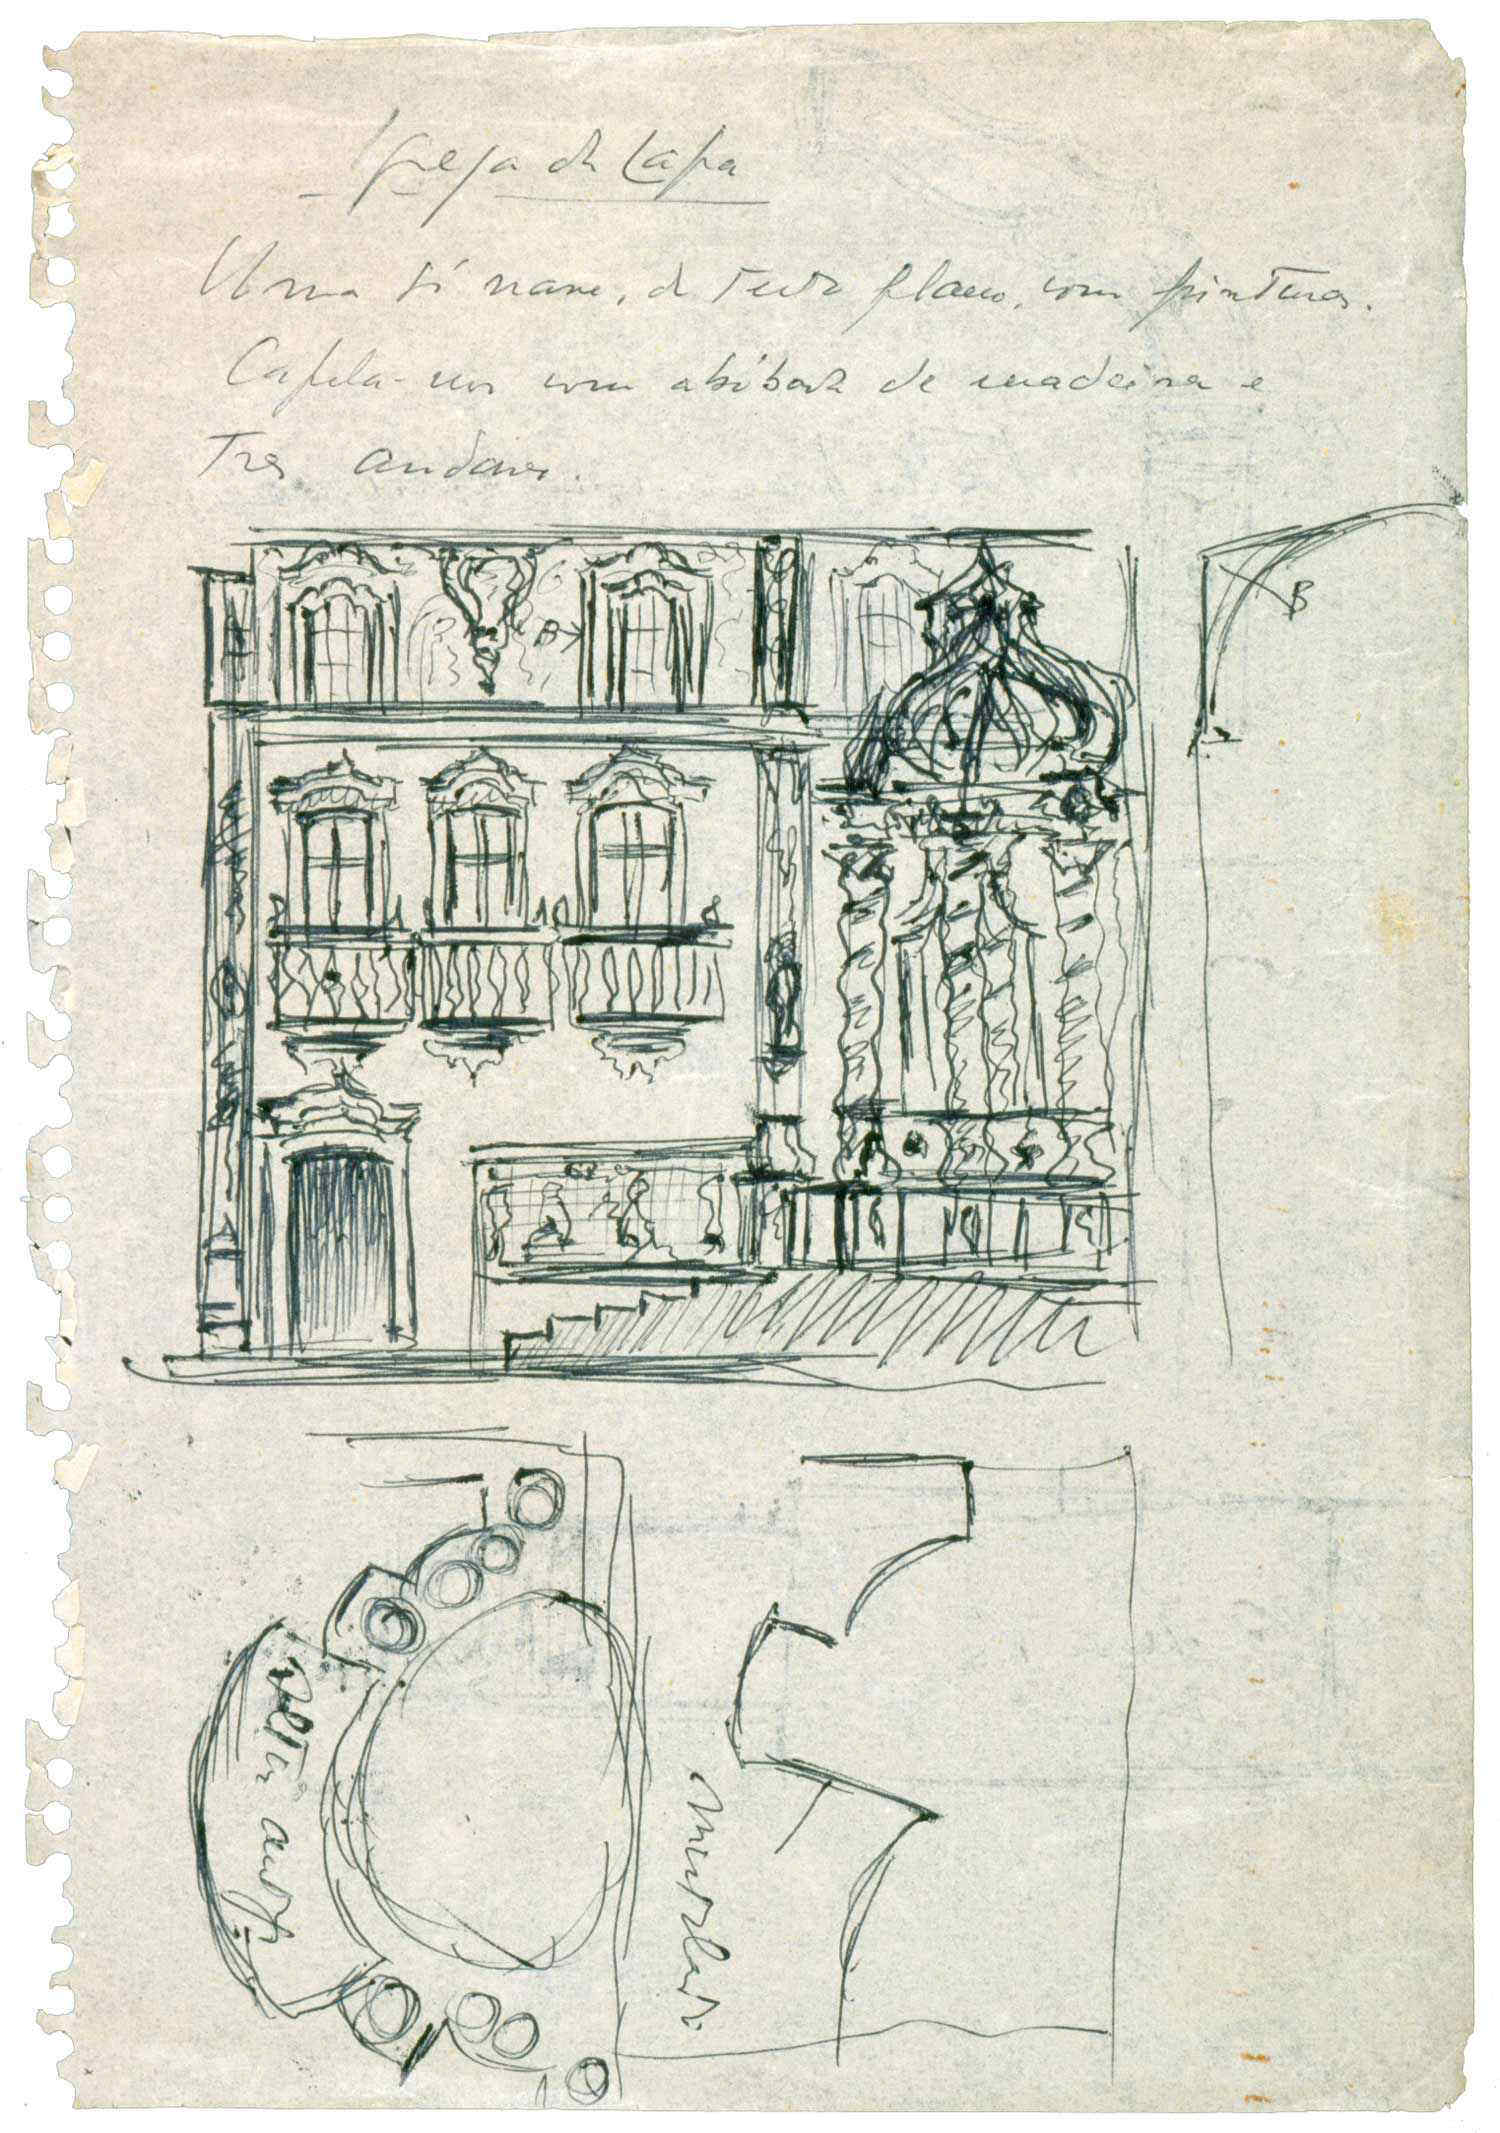 Igreja da Lapa
Uma só nave, de tecto plano, com pinturas.
Capela-mor com abóbada de madeira e
Tres andares.
B
B
Altar